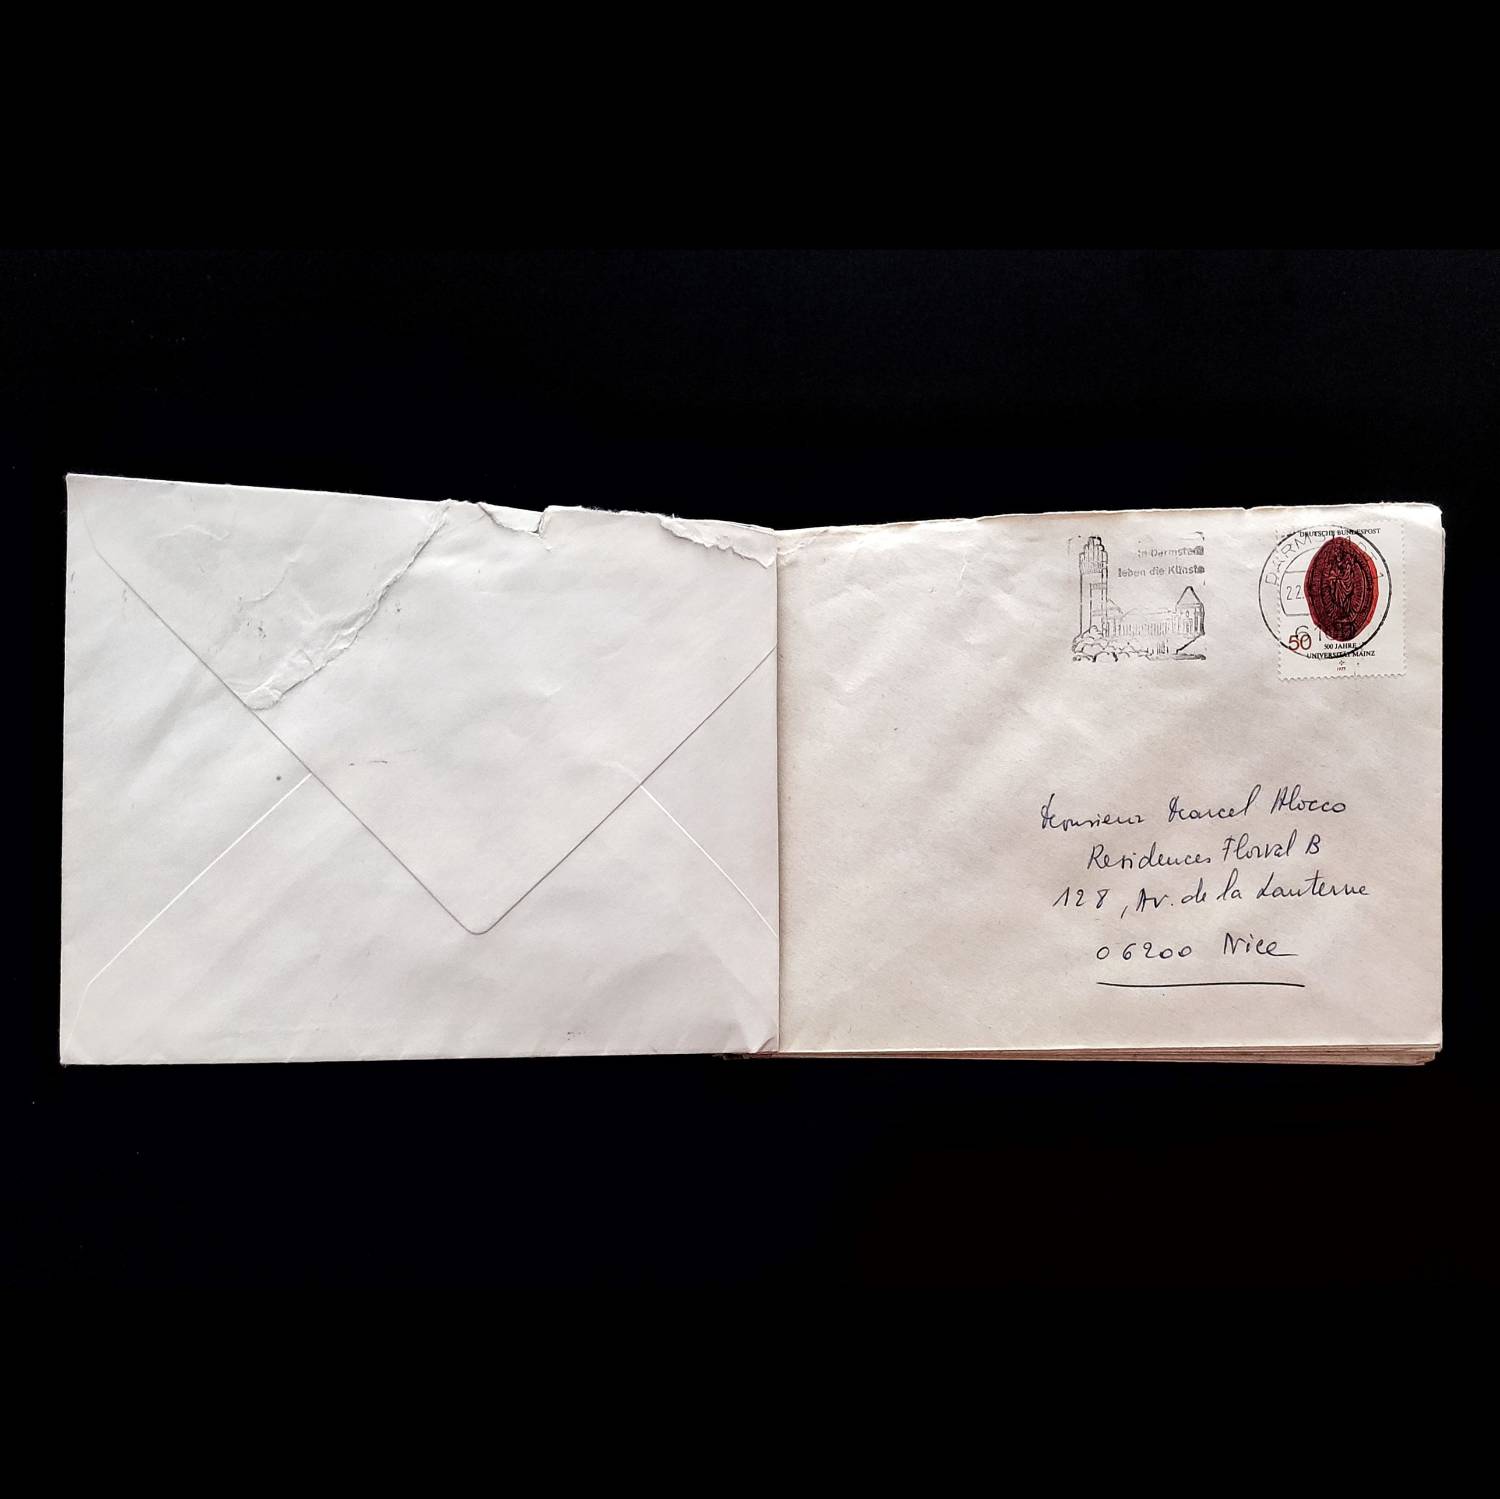 in Darmstadt
leben die Künste
DARMSTADT 1
22.
61
DEUTSCHE BUNDESPOST
50
500 JAHRE
UNIVERSITÄT MAINZ
1977
Monsieur Marcel Alocco
Residences Florval B
128, Av. de la Lanterne
06200 Nice